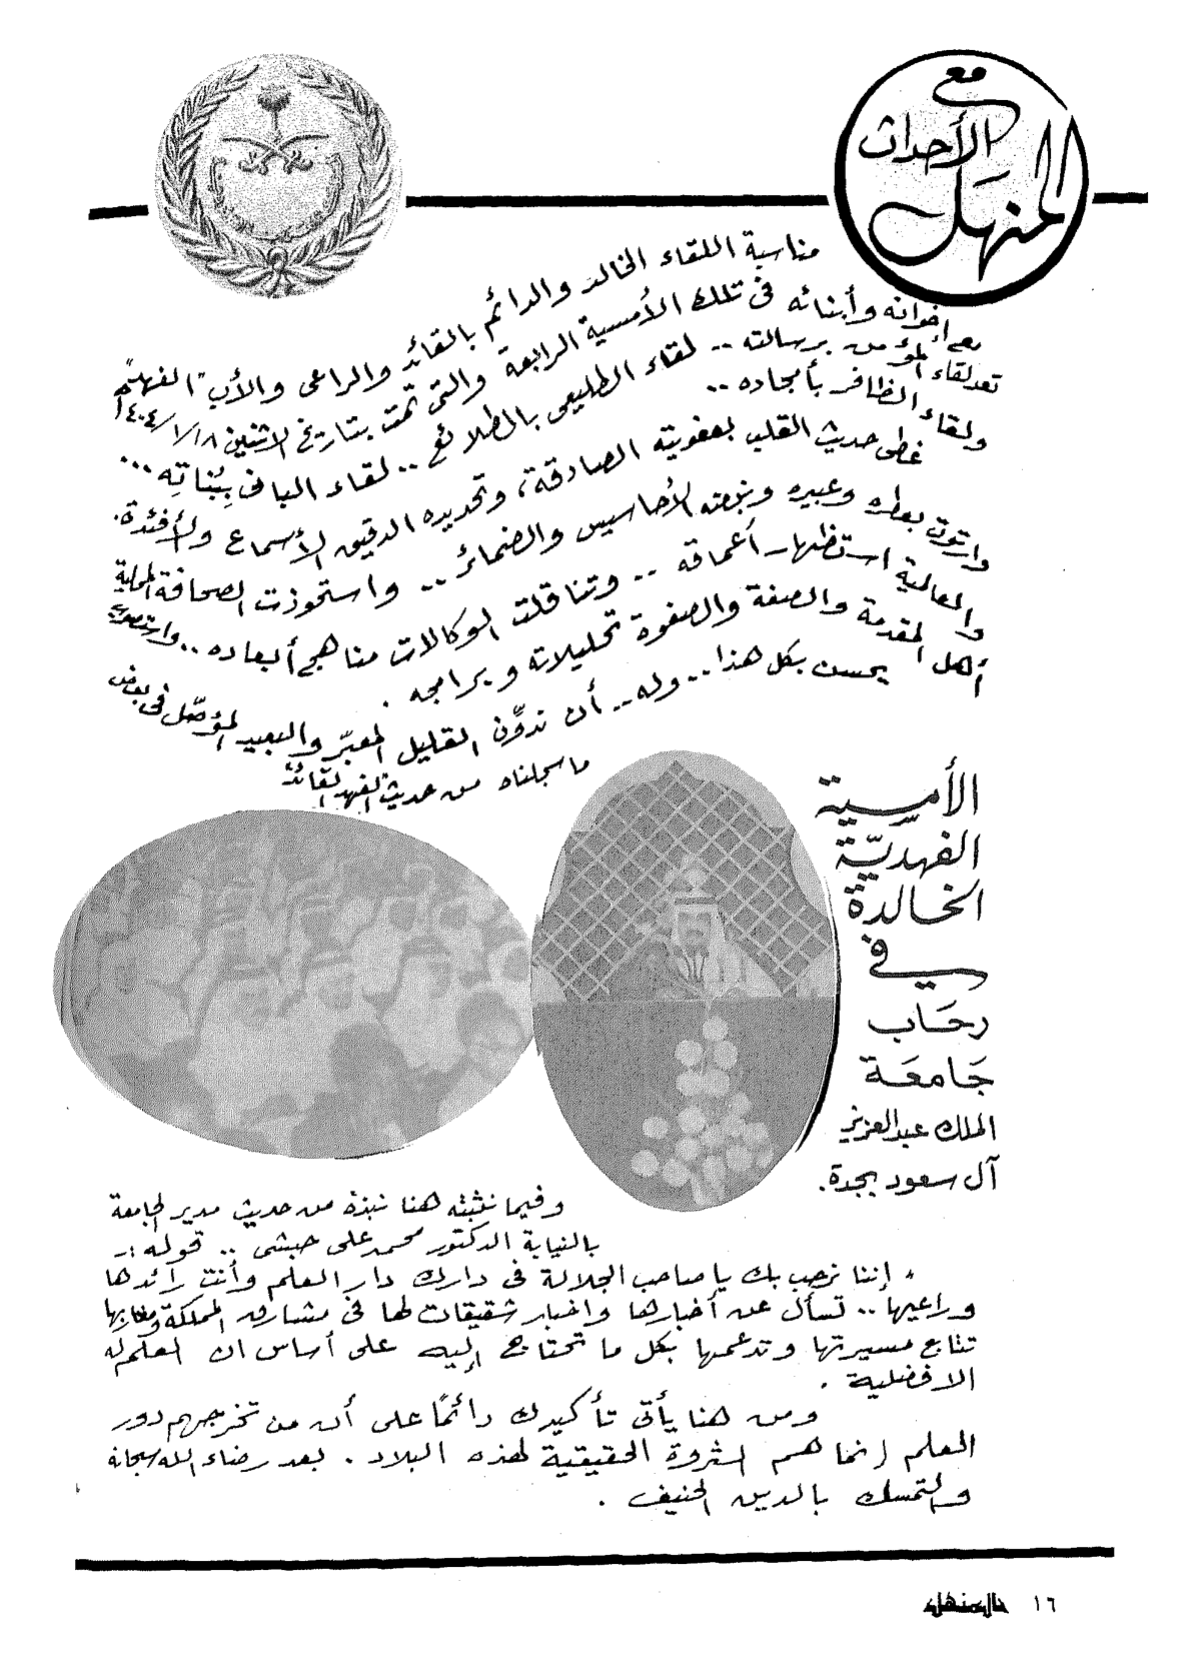 مع
الأحداث
المنهل
مناسبة اللقاء الخالد والدائم بالقائد والراعى والأب "الفهد"
مع إخوانه وأبنائه فى تلك الأمسية الرابعة والتى تمت بتاريخ الاثنين ١٤٠٤/١/١٨
تعد لقاء المؤمن برسالته .. لقاء الطليعى بالطلائع .. لقاء البانى ببُناتِه ...
ولقاء الظافر بأمجاده ..
غطى حديث القلب بعفويته الصادقة، وتحديده الدقيق الأسماع والأفئدة.
وارتوت بعطره وعبيره ونبضته الأحاسيس والضمائر .. واستحوذت الصحافة المحلية
والعالمية استظهار أعماقه .. وتناقلت الوكالات مناهج أبعاده .. واستصوب
أهل المقدمة والصفة والصفوة تحليلاته وبرامجه .
يحسن بكل هذا .. وله .. أن ندوّن القليل المعبّر والبعيد المؤصّل فى بعض
ما سجلناه من حديث الفهد القائد
الأمسية
الفهديّة
الخالدة
في
رحاب
جامعة
الملك عبدالعزيز
آل سعود بجدة.
وفيما نثبته هنا نبذة من حديث مدير الجامعة
بالنيابة الدكتور محمد على حبشى .. قوله :ـ
* إننا نرحب بك يا صاحب الجلالة فى دارك دار العلم وأنت رائدها
وراعيها .. تسأل عن أخبارها واخبار شقيقات لها فى مشارق المملكة ومغاربها
تتابع مسيرتها وتدعمها بكل ما تحتاج إليه على أساس ان العلم له
الافضلية .
ومن هنا يأتى تأكيدك دائمًا على أن من تخرجهم دور
العلم إنما هم الثروة الحقيقية لهذه البلاد . بعد رضاء الله سبحانه
والتمسك بالدين الحنيف .
١٦ المنهل